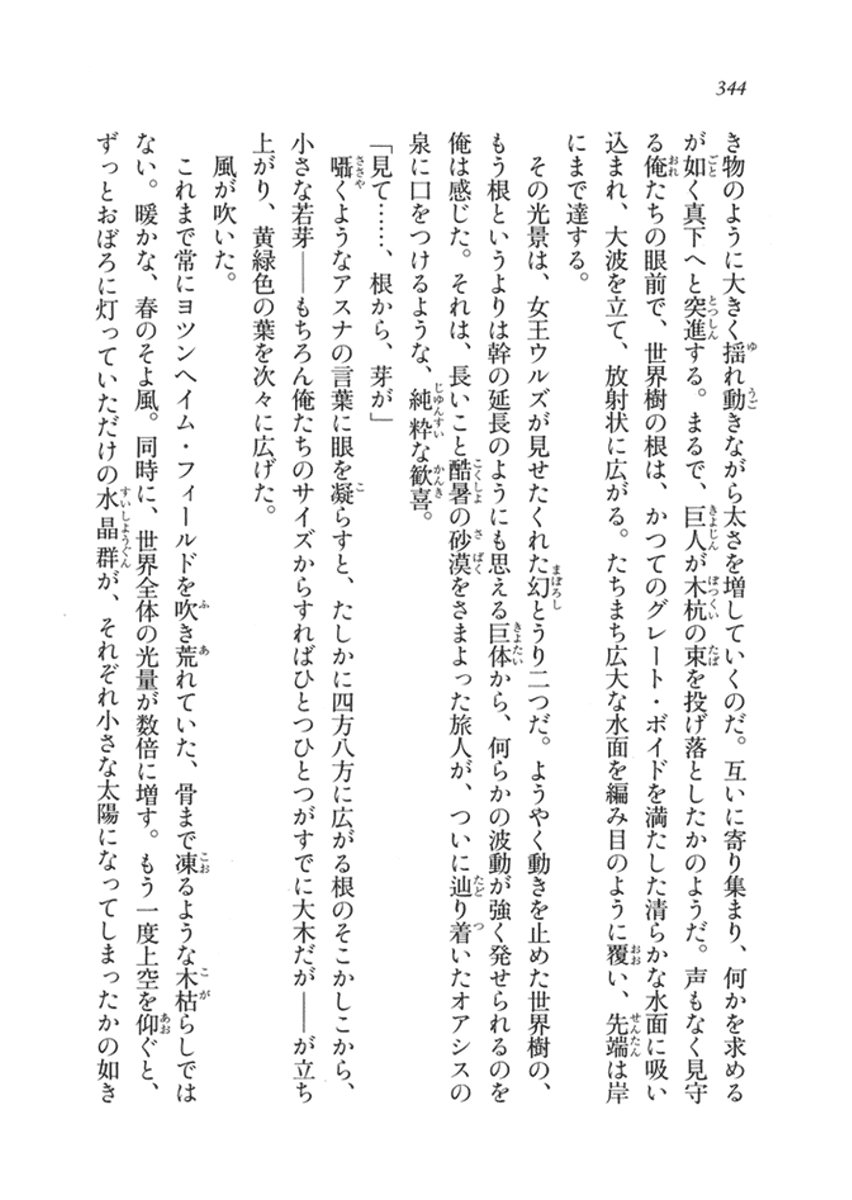 344
き物のように大きく揺れ動きながら太さを増していくのだ。互いに寄り集まり、何かを求める
が如く真下へと突進する。まるで、巨人が木杭の束を投げ落としたかのようだ。声もなく見守
る俺たちの眼前で、世界樹の根は、かつてのグレート・ボイドを満たした清らかな水面に吸い
込まれ、大波を立て、放射状に広がる。たちまち広大な水面を編み目のように覆い、先端は岸
にまで達する。
その光景は、女王ウルズが見せたくれた幻とうり二つだ。ようやく動きを止めた世界樹の、
もう根というよりは幹の延長のようにも思える巨体から、何らかの波動が強く発せられるのを
俺は感じた。それは、長いこと酷暑の砂漠をさまよった旅人が、ついに辿り着いたオアシスの
泉に口をつけるような、純粋な歓喜。
「見て……、根から、芽が」
囁くようなアスナの言葉に眼を凝らすと、たしかに四方八方に広がる根のそこかしこから、
小さな若芽――もちろん俺たちのサイズからすればひとつひとつがすでに大木だが――が立ち
上がり、黄緑色の葉を次々に広げた。
風が吹いた。
これまで常にヨツンヘイム・フィールドを吹き荒れていた、骨まで凍るような木枯らしでは
ない。暖かな、春のそよ風。同時に、世界全体の光量が数倍に増す。もう一度上空を仰ぐと、
ずっとおぼろに灯っていただけの水晶群が、それぞれ小さな太陽になってしまったかの如き